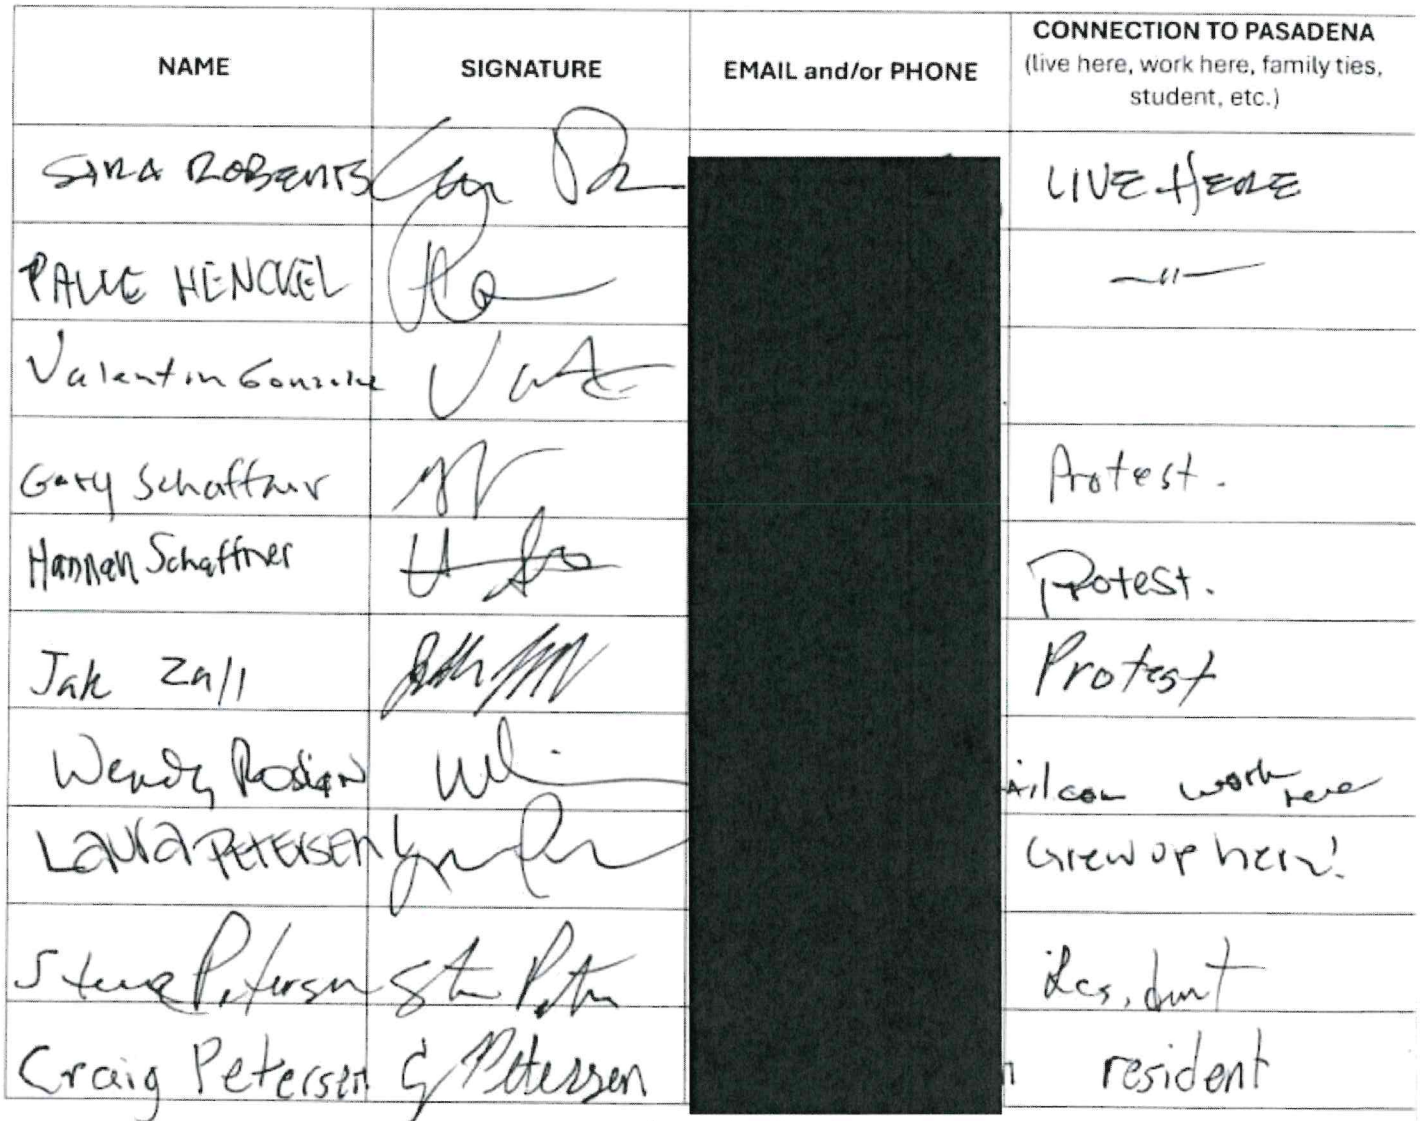 NAME SIGNATURE EMAIL and/or PHONE CONNECTION TO PASADENA
(live here, work here, family ties,
student, etc.)
SARA ROBERTS LIVE HERE
HENCKEL —〃—
Valentin Gonzalez
Gary Schaffner Protest.
Hannah Schaffner Protest.
Jak Protest
Wendy work here
LAURA PETERSEN Grew up here!
Steve Petersen Steve Petersen Resident
Craig Petersen C Petersen resident